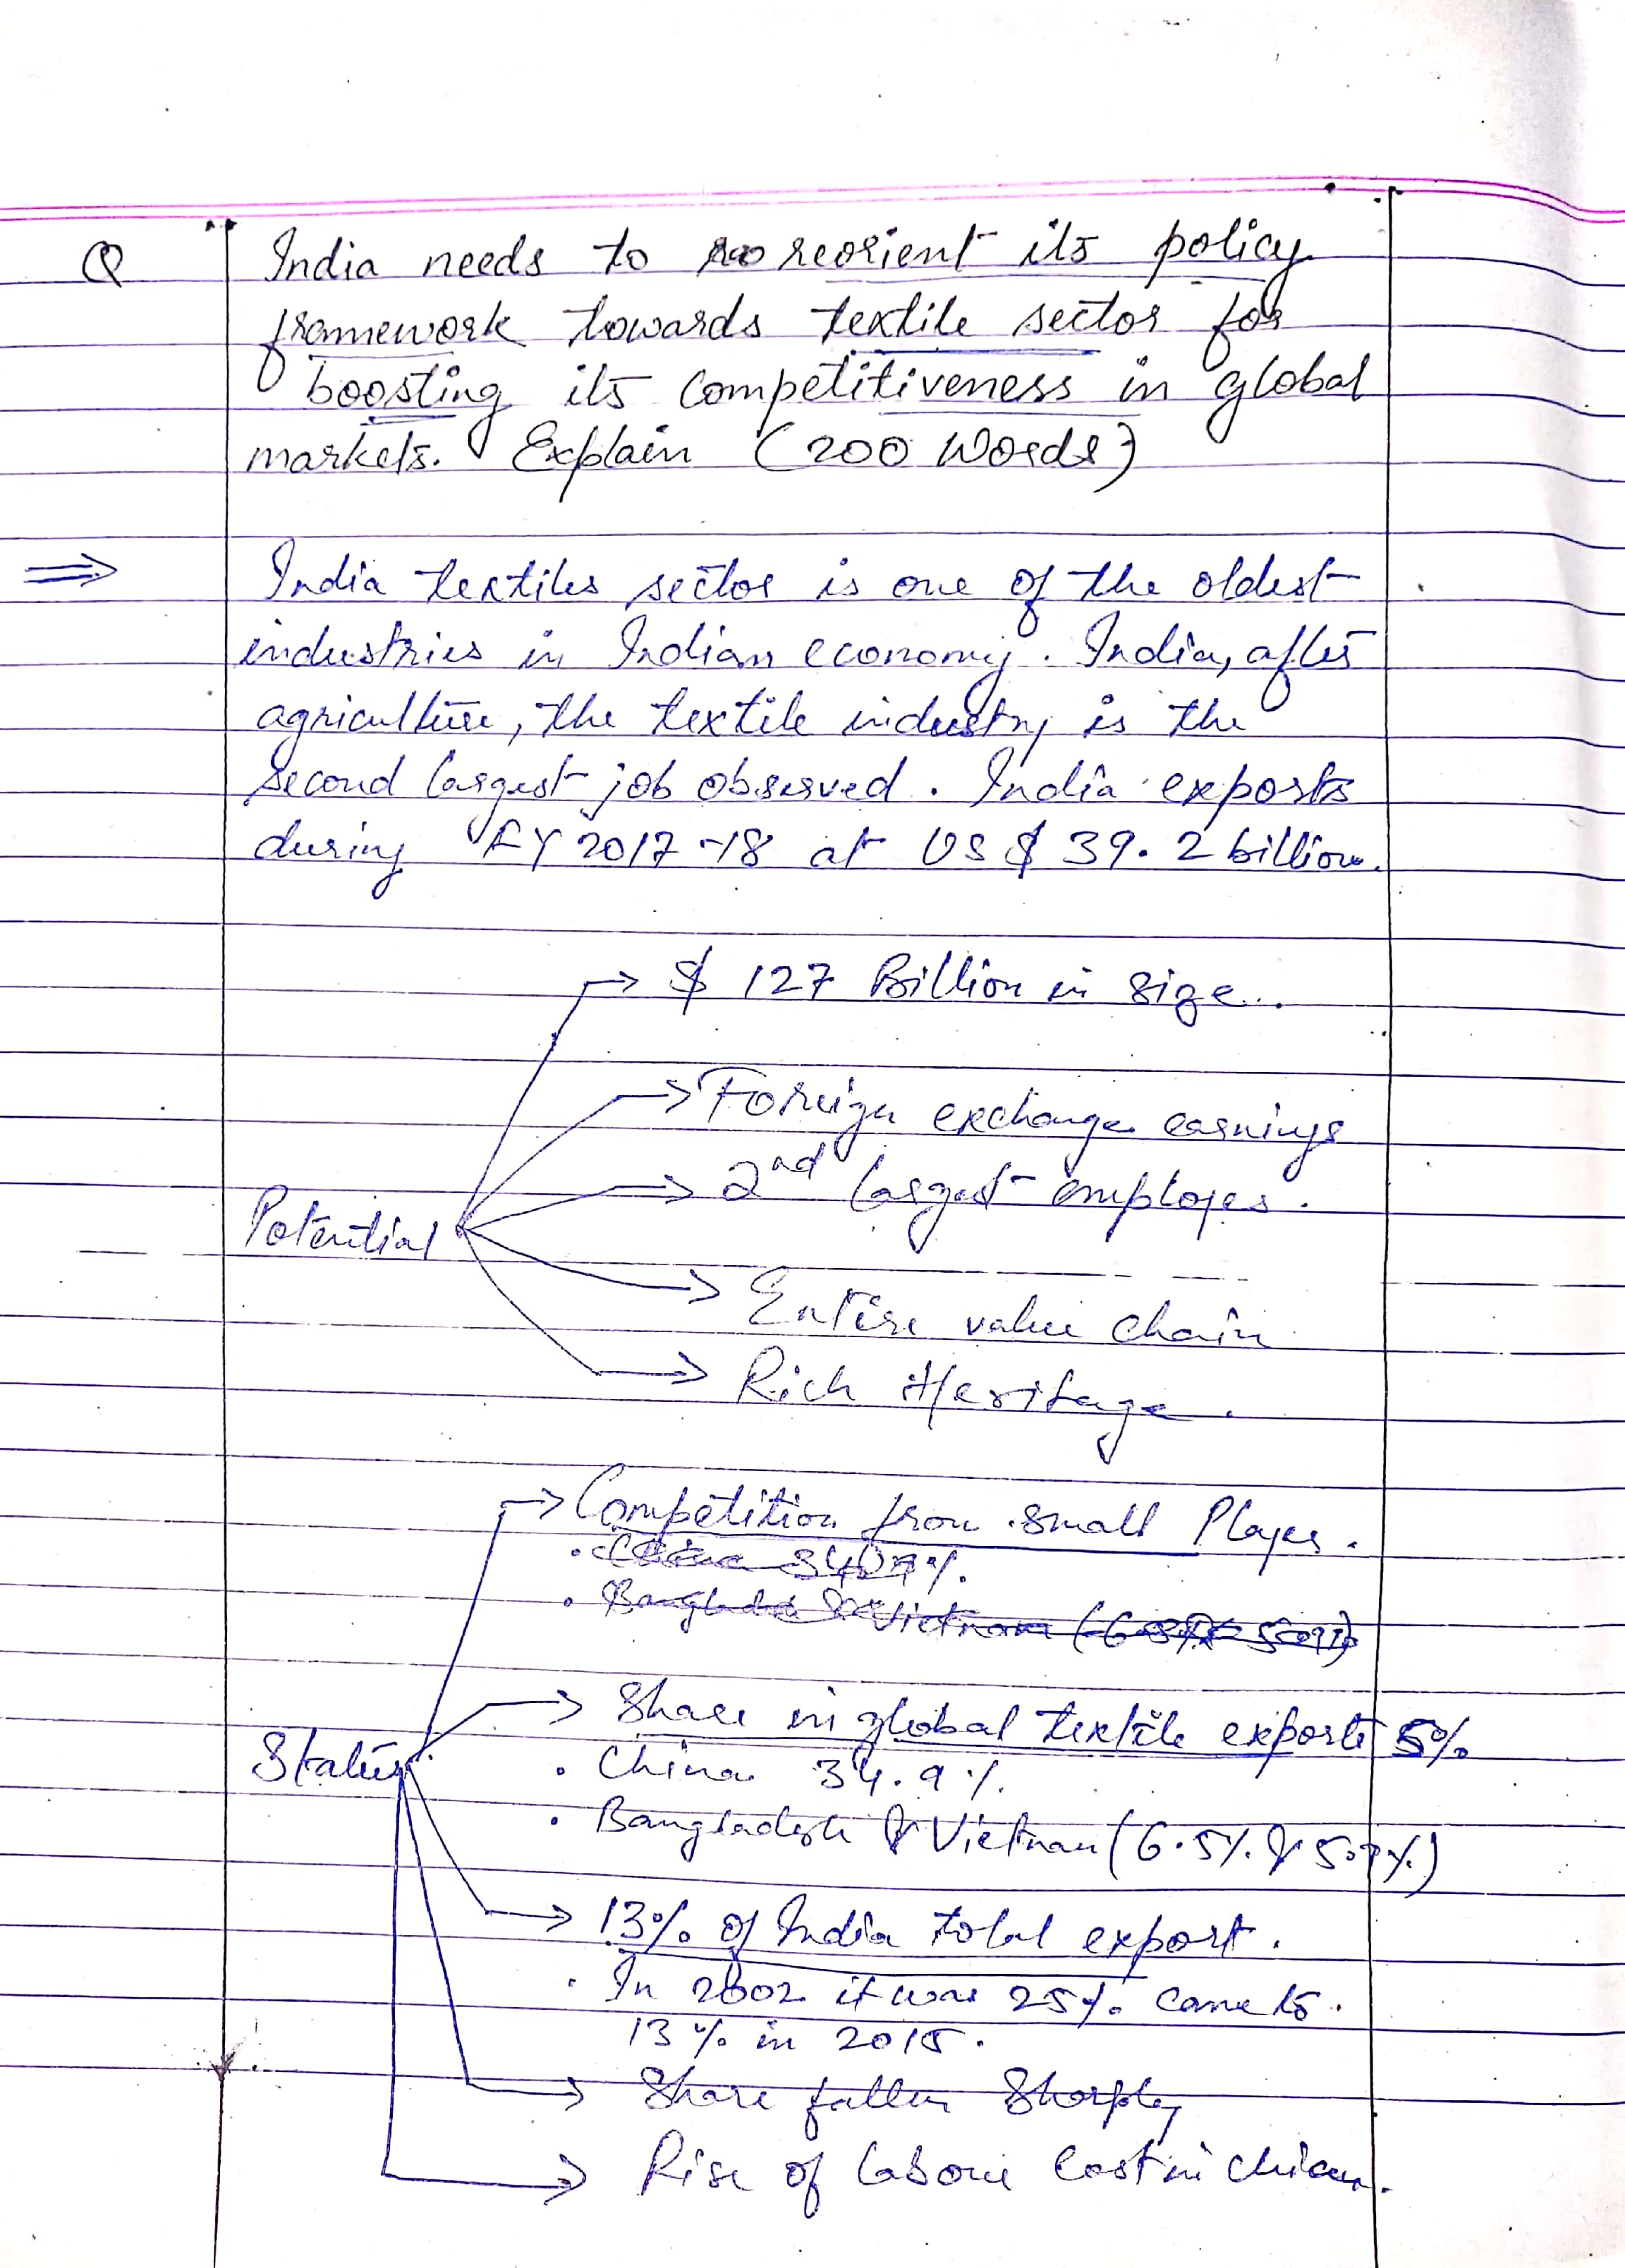 Q India needs to reorient its policy
framework towards textile sector for
boosting its competitiveness in global
markets. Explain (200 Words)
⇒ India textiles sector is one of the oldest
industries in Indian economy. India, after
agriculture, the textile industry is the
second largest job observed. India exports
during FY 2017-18 at US $ 39.2 billion.
→ $ 127 Billion in size..
→ Foreign exchange earnings
→ 2nd largest employes.
Potential
→ Entire value chain
→ Rich Heritage.
→ Competition from small Player.
→ Share in global textile exports 5%
Status
• China 34.9%.
• Bangladesh & Vietnam (6.5% & 5.9%)
→ 13% of India total export.
• In 2002 it was 25% came to.
13% in 2015.
→ Share fallen Sharply
→ Rise of labour cost in China.